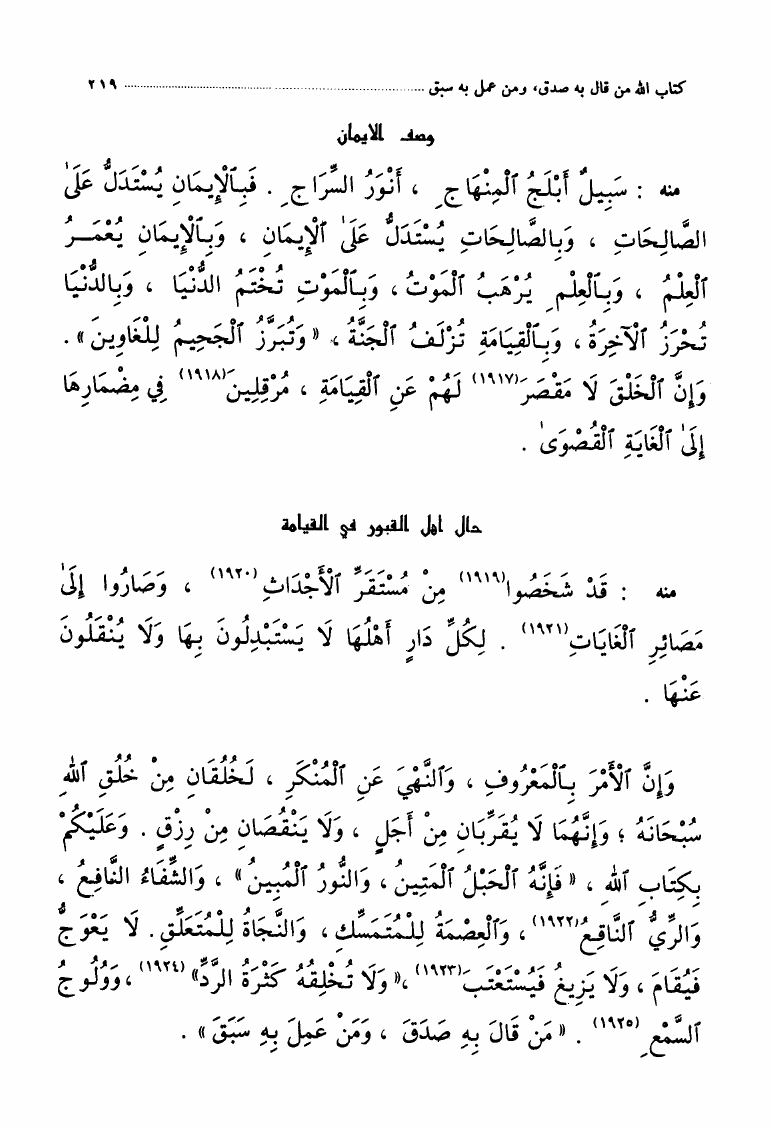 كتاب الله من قال به صدق، ومن عمل به سبق ........................ ٢١٩
وصف الايمان
منه : سَبِيلٌ أَبْلَجُ ٱلْمِنْهَاجِ ، أَنْوَرُ السِّرَاجِ . فَبِٱلْإِيمَانِ يُسْتَدَلُّ عَلَىٰ
الصَّالِحَاتِ ، وَبِالصَّالِحَاتِ يُسْتَدَلُّ عَلَىٰ ٱلْإِيمَانِ ، وَبِٱلْإِيمَانِ يُعْمَـرُ
ٱلْعِلْمُ ، وَبِٱلْعِلْمِ يُرْهَبُ ٱلْمَوْتُ ، وَبِٱلْمَوْتِ تُخْتَمُ الدُّنْيَا ، وَبِالدُّنْيَا
تُحْرَزُ ٱلْآخِرَةُ ، وَبِٱلْقِيَامَةِ تُزْلَفُ ٱلْجَنَّةُ ، «وَتُبَرَّزُ ٱلْجَحِيمُ لِلْغَاوِينَ» .
وَإِنَّ ٱلْخَلْقَ لَا مَقْصَرَ(١٩١٧) لَهُمْ عَنِ ٱلْقِيَامَةِ ، مُرْقِلِينَ(١٩١٨) فِي مِضْمَارِهَا
إِلَىٰ ٱلْغَايَةِ ٱلْقُصْوَىٰ .
حال اهل القبور في القيامة
منه : قَدْ شَخَصُوا(١٩١٩) مِنْ مُسْتَقَرِّ ٱلْأَجْدَاثِ(١٩٢٠) ، وَصَارُوا إِلَىٰ
مَصَائِرِ ٱلْغَايَاتِ(١٩٢١) . لِكُلِّ دَارٍ أَهْلُهَا لَا يَسْتَبْدِلُونَ بِهَا وَلَا يُنْقَلُونَ
عَنْهَا .
وَإِنَّ ٱلْأَمْرَ بِٱلْمَعْرُوفِ ، وَٱلنَّهْيَ عَنِ ٱلْمُنْكَرِ ، لَخُلُقَانِ مِنْ خُلُقِ ٱللهِ
سُبْحَانَهُ ؛ وَإِنَّهُمَا لَا يُقَرِّبَانِ مِنْ أَجَلٍ ، وَلَا يَنْقُصَانِ مِنْ رِزْقٍ . وَعَلَيْكُمْ
بِكِتَابِ ٱللهِ ، «فَإِنَّهُ ٱلْحَبْلُ ٱلْمَتِينُ ، وَالنُّورُ ٱلْمُبِينُ» ، وَالشِّفَاءُ النَّافِعُ ،
وَالرِّيُّ ٱلنَّاقِعُ(١٩٢٢) ، وَٱلْعِصْمَةُ لِلْمُتَمَسِّكِ ، وَالنَّجَاةُ لِلْمُتَعَلِّقِ . لَا يَعْوَجُّ
فَيُقَامَ ، وَلَا يَزِيغُ فَيُسْتَعْتَبَ(١٩٢٣) ، «وَلَا تُخْلِقُهُ كَثْرَةُ الرَّدِّ»(١٩٢٤) ، وَوُلُوجُ
ٱلسَّمْعِ(١٩٢٥) . «مَنْ قَالَ بِهِ صَدَقَ ، وَمَنْ عَمِلَ بِهِ سَبَقَ» .